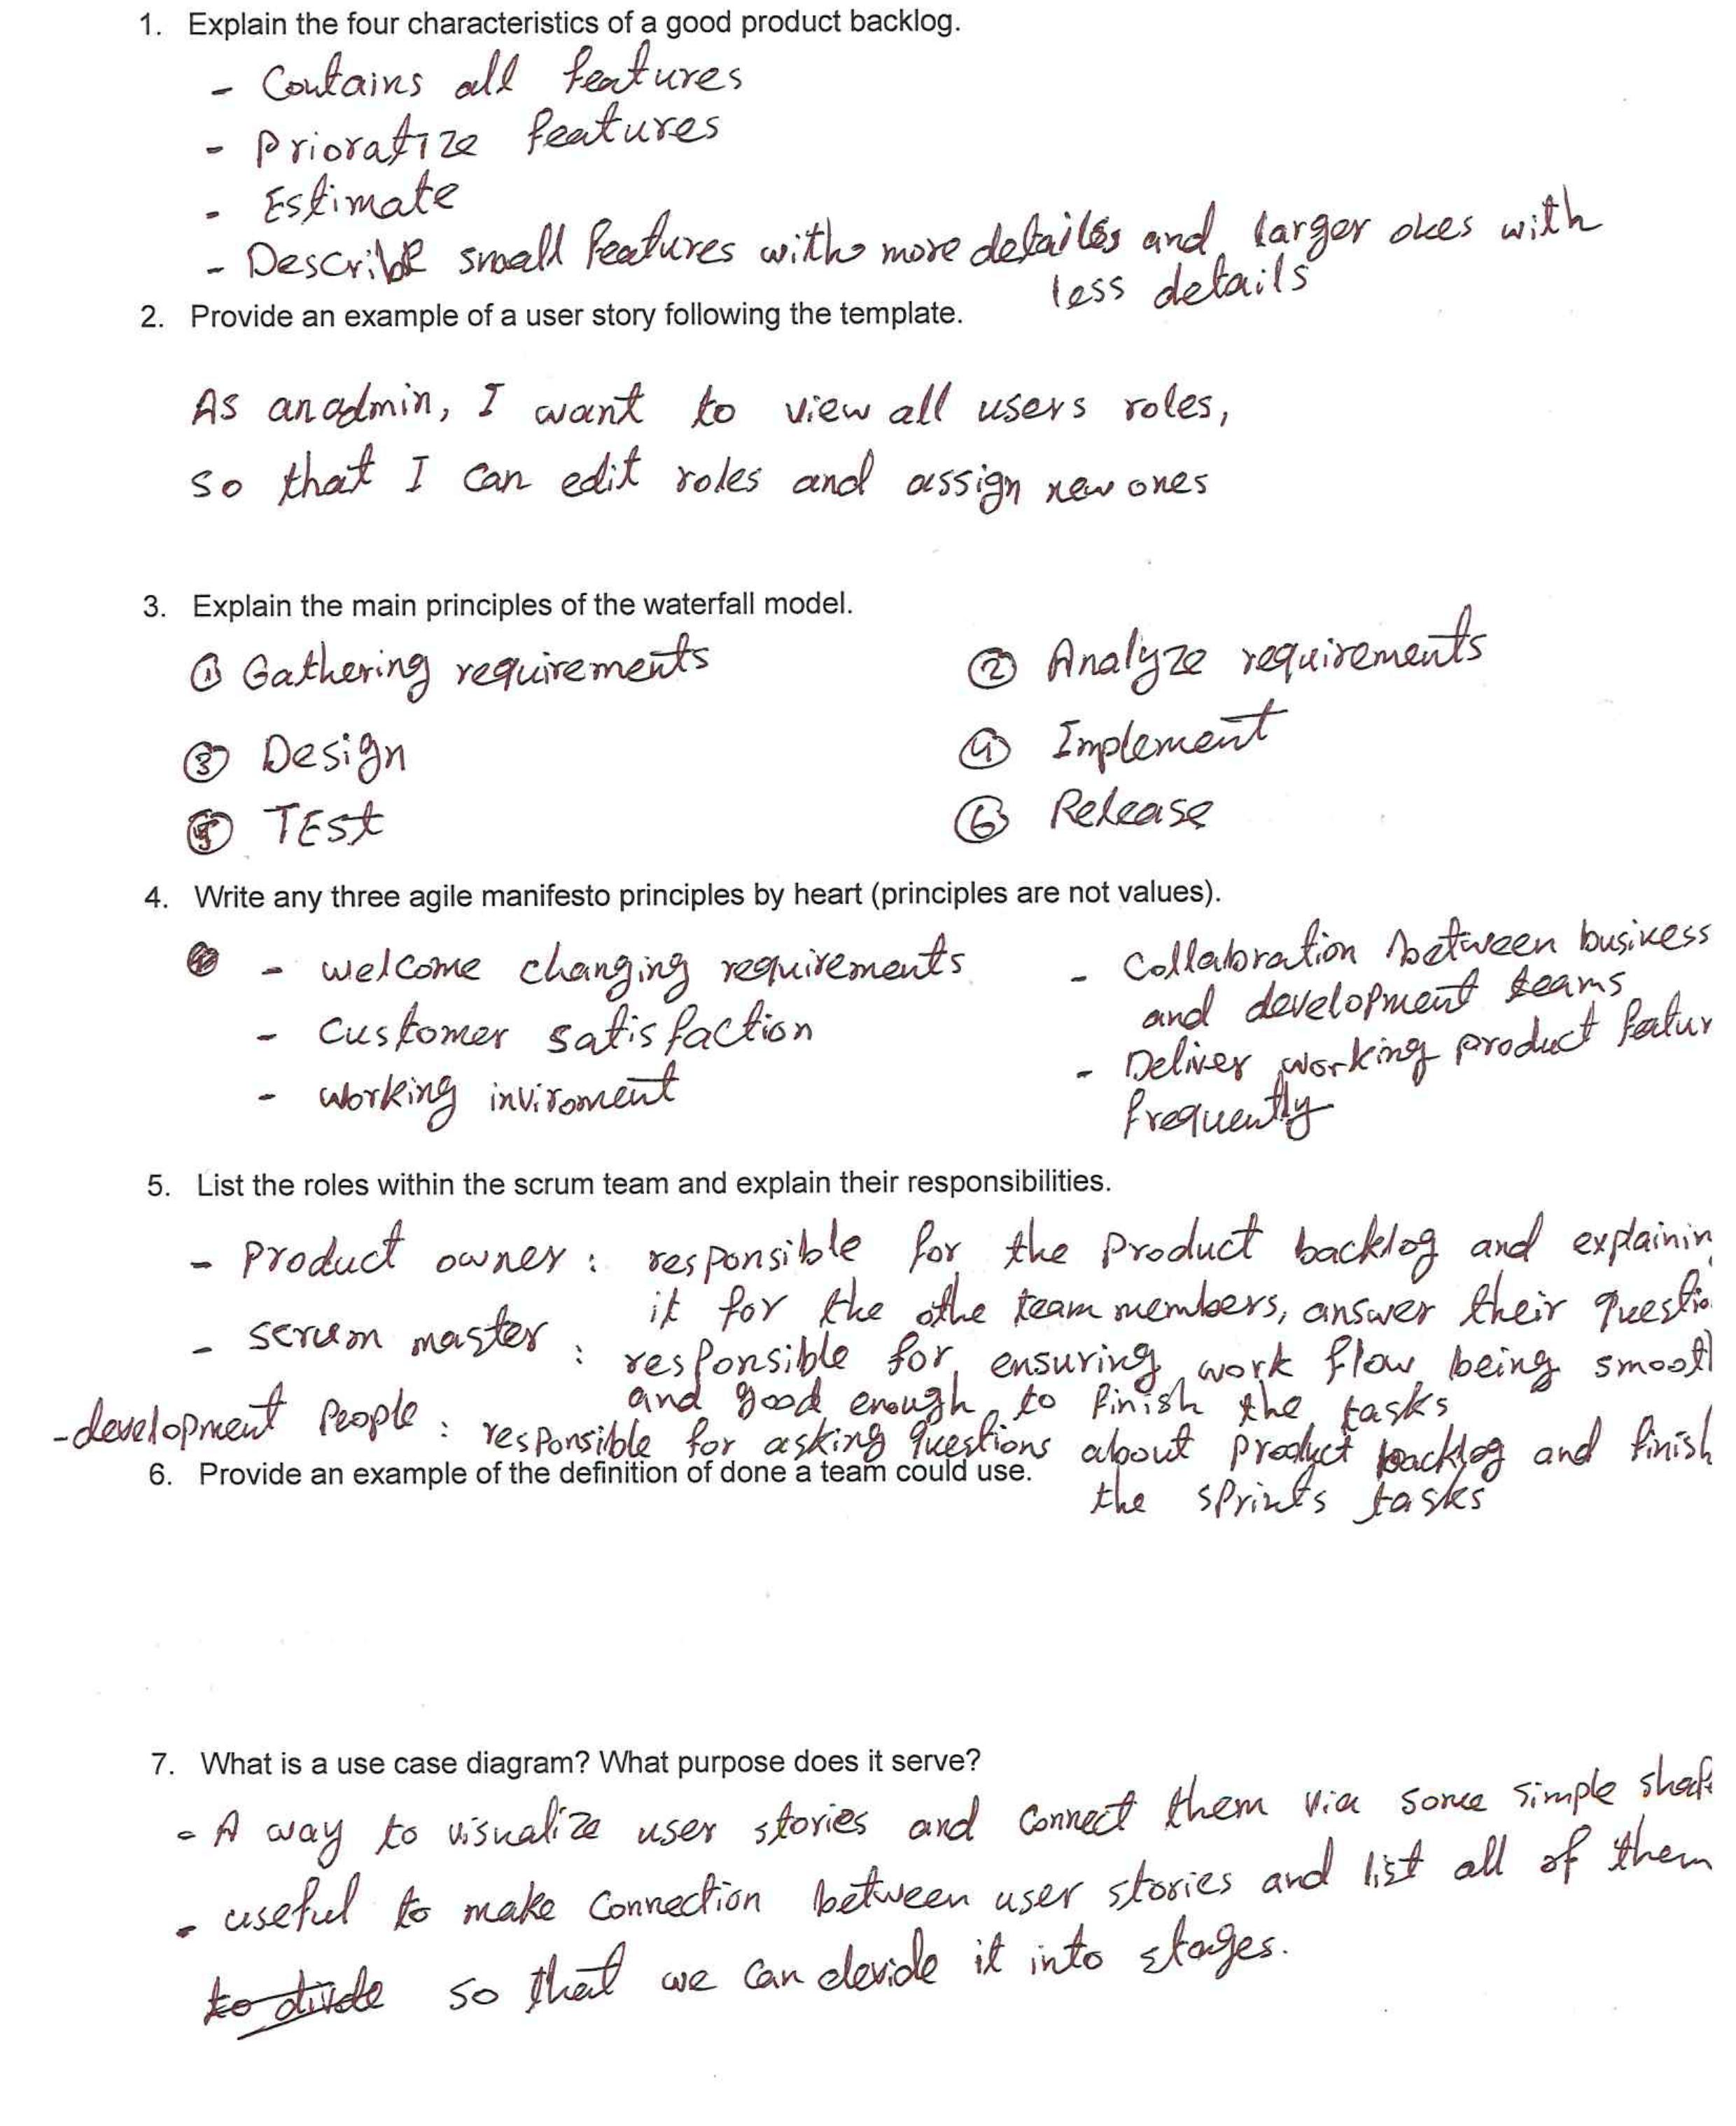 1. Explain the four characteristics of a good product backlog.
- Contains all features
- Prioratize features
- Estimate
- Describe small features with more details and larger ones with
less details
2. Provide an example of a user story following the template.
As an admin, I want to view all users roles,
so that I can edit roles and assign new ones
3. Explain the main principles of the waterfall model.
① Gathering requirements ② Analyze requirements
③ Design ④ Implement
⑤ TEst ⑥ Release
4. Write any three agile manifesto principles by heart (principles are not values).
- welcome changing requirements
- customer satisfaction
- working inviroment
- Collabration between business
and development teams
- Deliver working product featur
frequently
5. List the roles within the scrum team and explain their responsibilities.
- Product owner : responsible for the product backlog and explainin
it for the othe team members, answer their questio
- scrum master : responsible for ensuring work flow being smoot
and good enough to finish the tasks
- development People : responsible for asking questions about product backlog and finish
the sprints tasks
6. Provide an example of the definition of done a team could use.
7. What is a use case diagram? What purpose does it serve?
- A way to visualize user stories and connect them via some simple shap
- useful to make connection between user stories and list all of them
to divide so that we can devide it into stages.